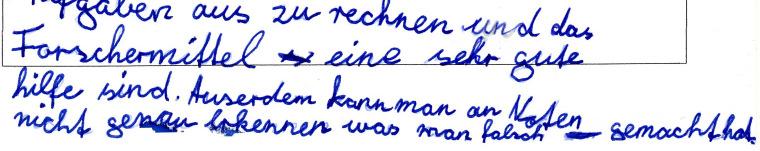 Aufgaben aus zu rechnen und das
Forschermittel eine sehr gute
hilfe sind. Auserdem kann man an Noten
nicht genau erkennen was man falsch gemacht hat.